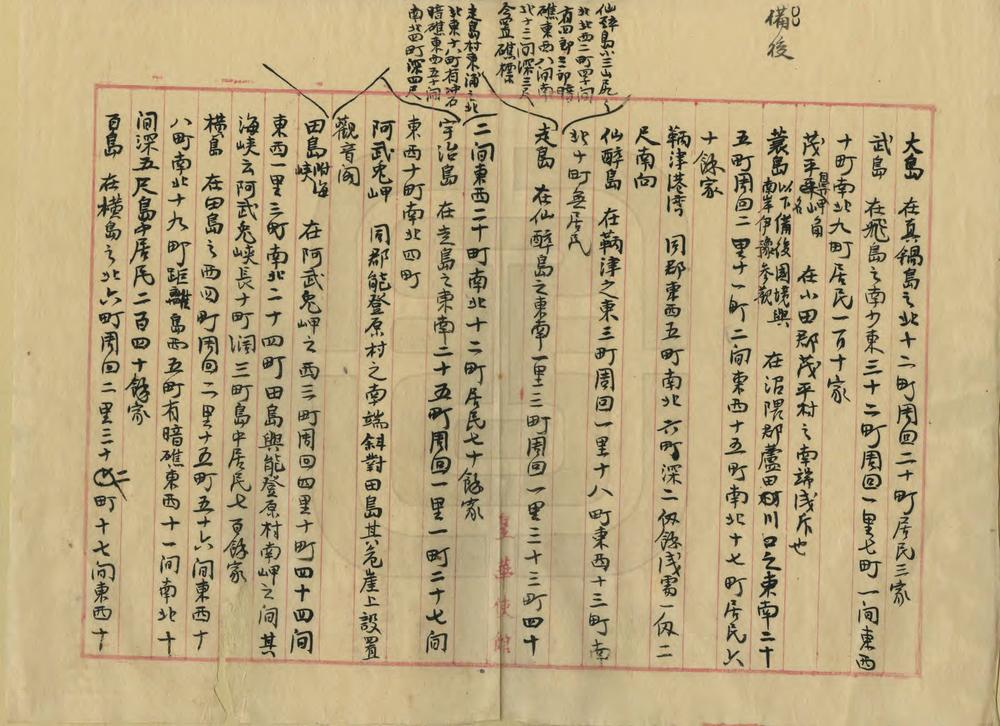 備後
仙醉島小三山尾之
北北西二町四十間
有四郎三郎暗
礁東西八間南
北十二間深三尺
今置礁標
走島村東浦之北
北東十六町有沖石
暗礁東西五十間
南北四町深四尺
大島　在真鍋島之北十二町周回二十町居民三家
武島　在飛島之南少東三十二町周回一里七町一間東西
十町南北九町居民一百十家
茂平 在小田郡茂平村之南端浅斥也
蓑島 以下備後國境與南岸伊豫參觀　在沼隈郡蘆田川口之東南二十
五町周回二里十一町二間東西十五町南北十七町居民六
十餘家
鞆津港湾　同郡東西五町南北六町深二仭餘浅處一仭二
尺南向
仙醉島　在鞆津之東三町周回一里十八町東西十三町南
北十町無居民
走島　在仙醉島之東南一里三町周回一里三十三町四十
二間東西二十町南北十二町居民七十餘家
宇治島　在走島之東南二十五町周回一里一町二十七間
東西十町南北四町
阿武兎岬　同郡能登原村之南端斜對田島其危崖上設置
觀音閣
田島 附海峡　在阿武兎岬之西三町周回四里十町四十四間
東西一里三町南北二十四町田島與能登原村南岬之間其
海峡云阿武兎峡長十町濶三町島中居民七百餘家
横島　在田島之西四町周回二里十五町五十六間東西十
八町南北十九町距離島西五町有暗礁東西十一間南北十
間深五尺島中居民二百四十餘家
百島　在横島之北六町周回二里三十二町十七間東西十
皇華使館